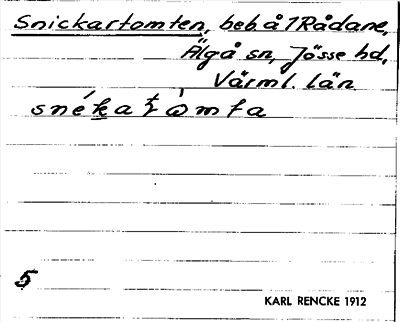 Snickartomten, beb. å 1 Rådane,
Älgå sn, Jösse hd,
Värml. län
snékatòmta
5
KARL RENCKE 1912